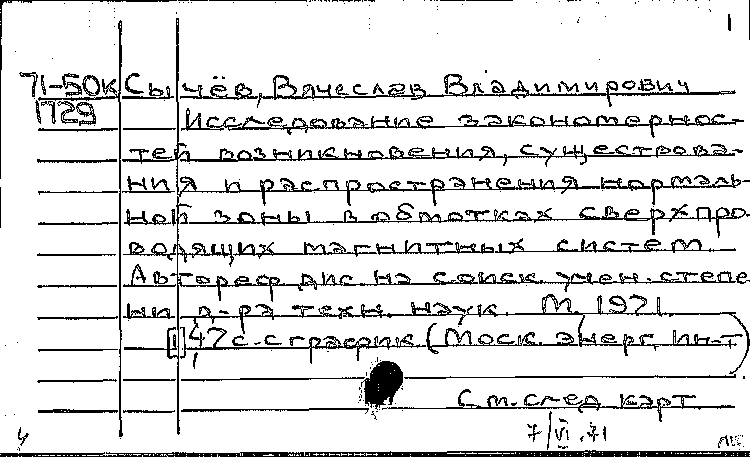 1
71-50к Сычёв, Вячеслав Владимирович
1729 Исследование закономернос-
тей возникновения, существова-
ния и распространения нормаль-
ной зоны в обмотках сверхпро-
водящих магнитных систем.
Автореф. дис. на соиск. учен. степе
ни д-ра техн. наук. М., 1971.
1 47 с. с график. (Моск. энерг. ин-т)
См. след. карт.
7/VI.71